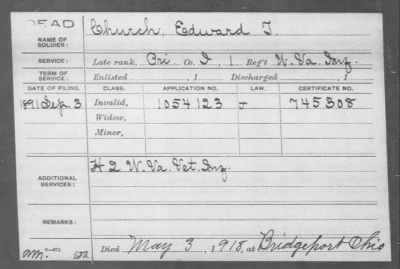 DEAD
NAME OF SOLDIER: Church, Edward T.
SERVICE: Late rank, Pri Co. I, 1 Reg't W. Va. Inf.
TERM OF SERVICE: Enlisted , 1 Discharged , 1
DATE OF FILING. CLASS. APPLICATION NO. LAW. CERTIFICATE NO.
1891 Sep. 3 Invalid, 1054123 J 745308
Widow,
Minor,
ADDITIONAL SERVICES: H 2 W. Va. Vet. Inf.
REMARKS:
Died May 3, 1918, at Bridgeport Ohio